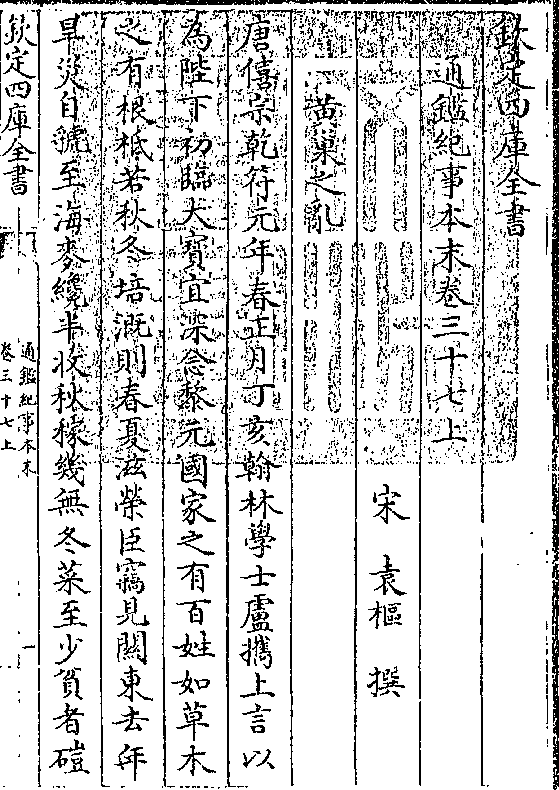 欽定四庫全書
通鑑紀事本末卷三十七上
宋 袁樞 撰
黄巢之亂
唐僖宗乾符元年春正月丁亥翰林學士盧攜上言以
為陛下初臨大寳宜深念黎元國家之有百姓如草木
之有根柢若秋冬培溉則春夏滋榮臣竊見關東去年
旱災自虢至海麥纔半收秋稼幾無冬菜至少貧者磑
欽定四庫全書
通鑑紀事本末
卷三十七上
一